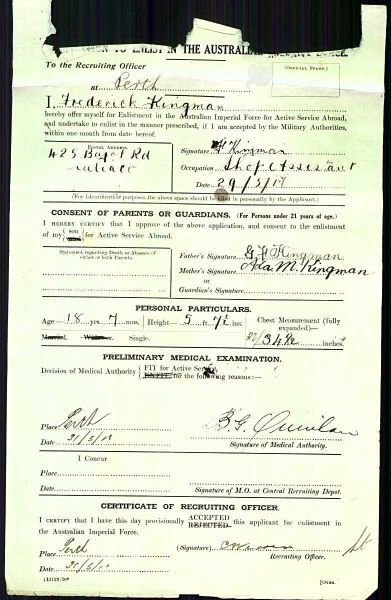 TO ENLIST IN THE AUSTRALIAN IMPERIAL FORCE.
To the Recruiting Officer
(OFFICIAL STAMP.)
at Perth
I, Frederick Kingman
hereby offer myself for Enlistment in the Australian Imperial Force for Active Service Abroad,
and undertake to enlist in the manner prescribed, if I am accepted by the Military Authorities,
within one month from date hereof.
POSTAL ADDRESS
425 Rd
Signature F Kingman
Occupation Shop Assistant
Date 29/5/17
(For identification purposes the above space should be filled in personally by the Applicant.)
CONSENT OF PARENTS OR GUARDIANS. (For Persons under 21 years of age.)
I HEREBY CERTIFY that I approve of the above application, and consent to the enlistment
of my son for Active Service Abroad.
Statement regarding Death or Absence of either or both Parents.
Father's Signature Kingman
Mother's Signature M. Kingman
or
Guardian's Signature
PERSONAL PARTICULARS.
Age 18 yrs 7 mos. Height 5 ft. ins. Chest Measurement (fully expanded) 32/34 inches
Married. Widower. Single.
PRELIMINARY MEDICAL EXAMINATION.
Decision of Medical Authority FIT for Active Service
UNFIT for the following reasons:—
Place Perth
Date
Signature of Medical Authority.
I Concur
Place
Date
Signature of M.O. at Central Recruiting Depot.
CERTIFICATE OF RECRUITING OFFICER.
I CERTIFY that I have this day provisionally ACCEPTED REJECTED this applicant for enlistment in
the Australian Imperial Force.
Place Perth
(Signature)
Recruiting Officer.
Date
[Over.